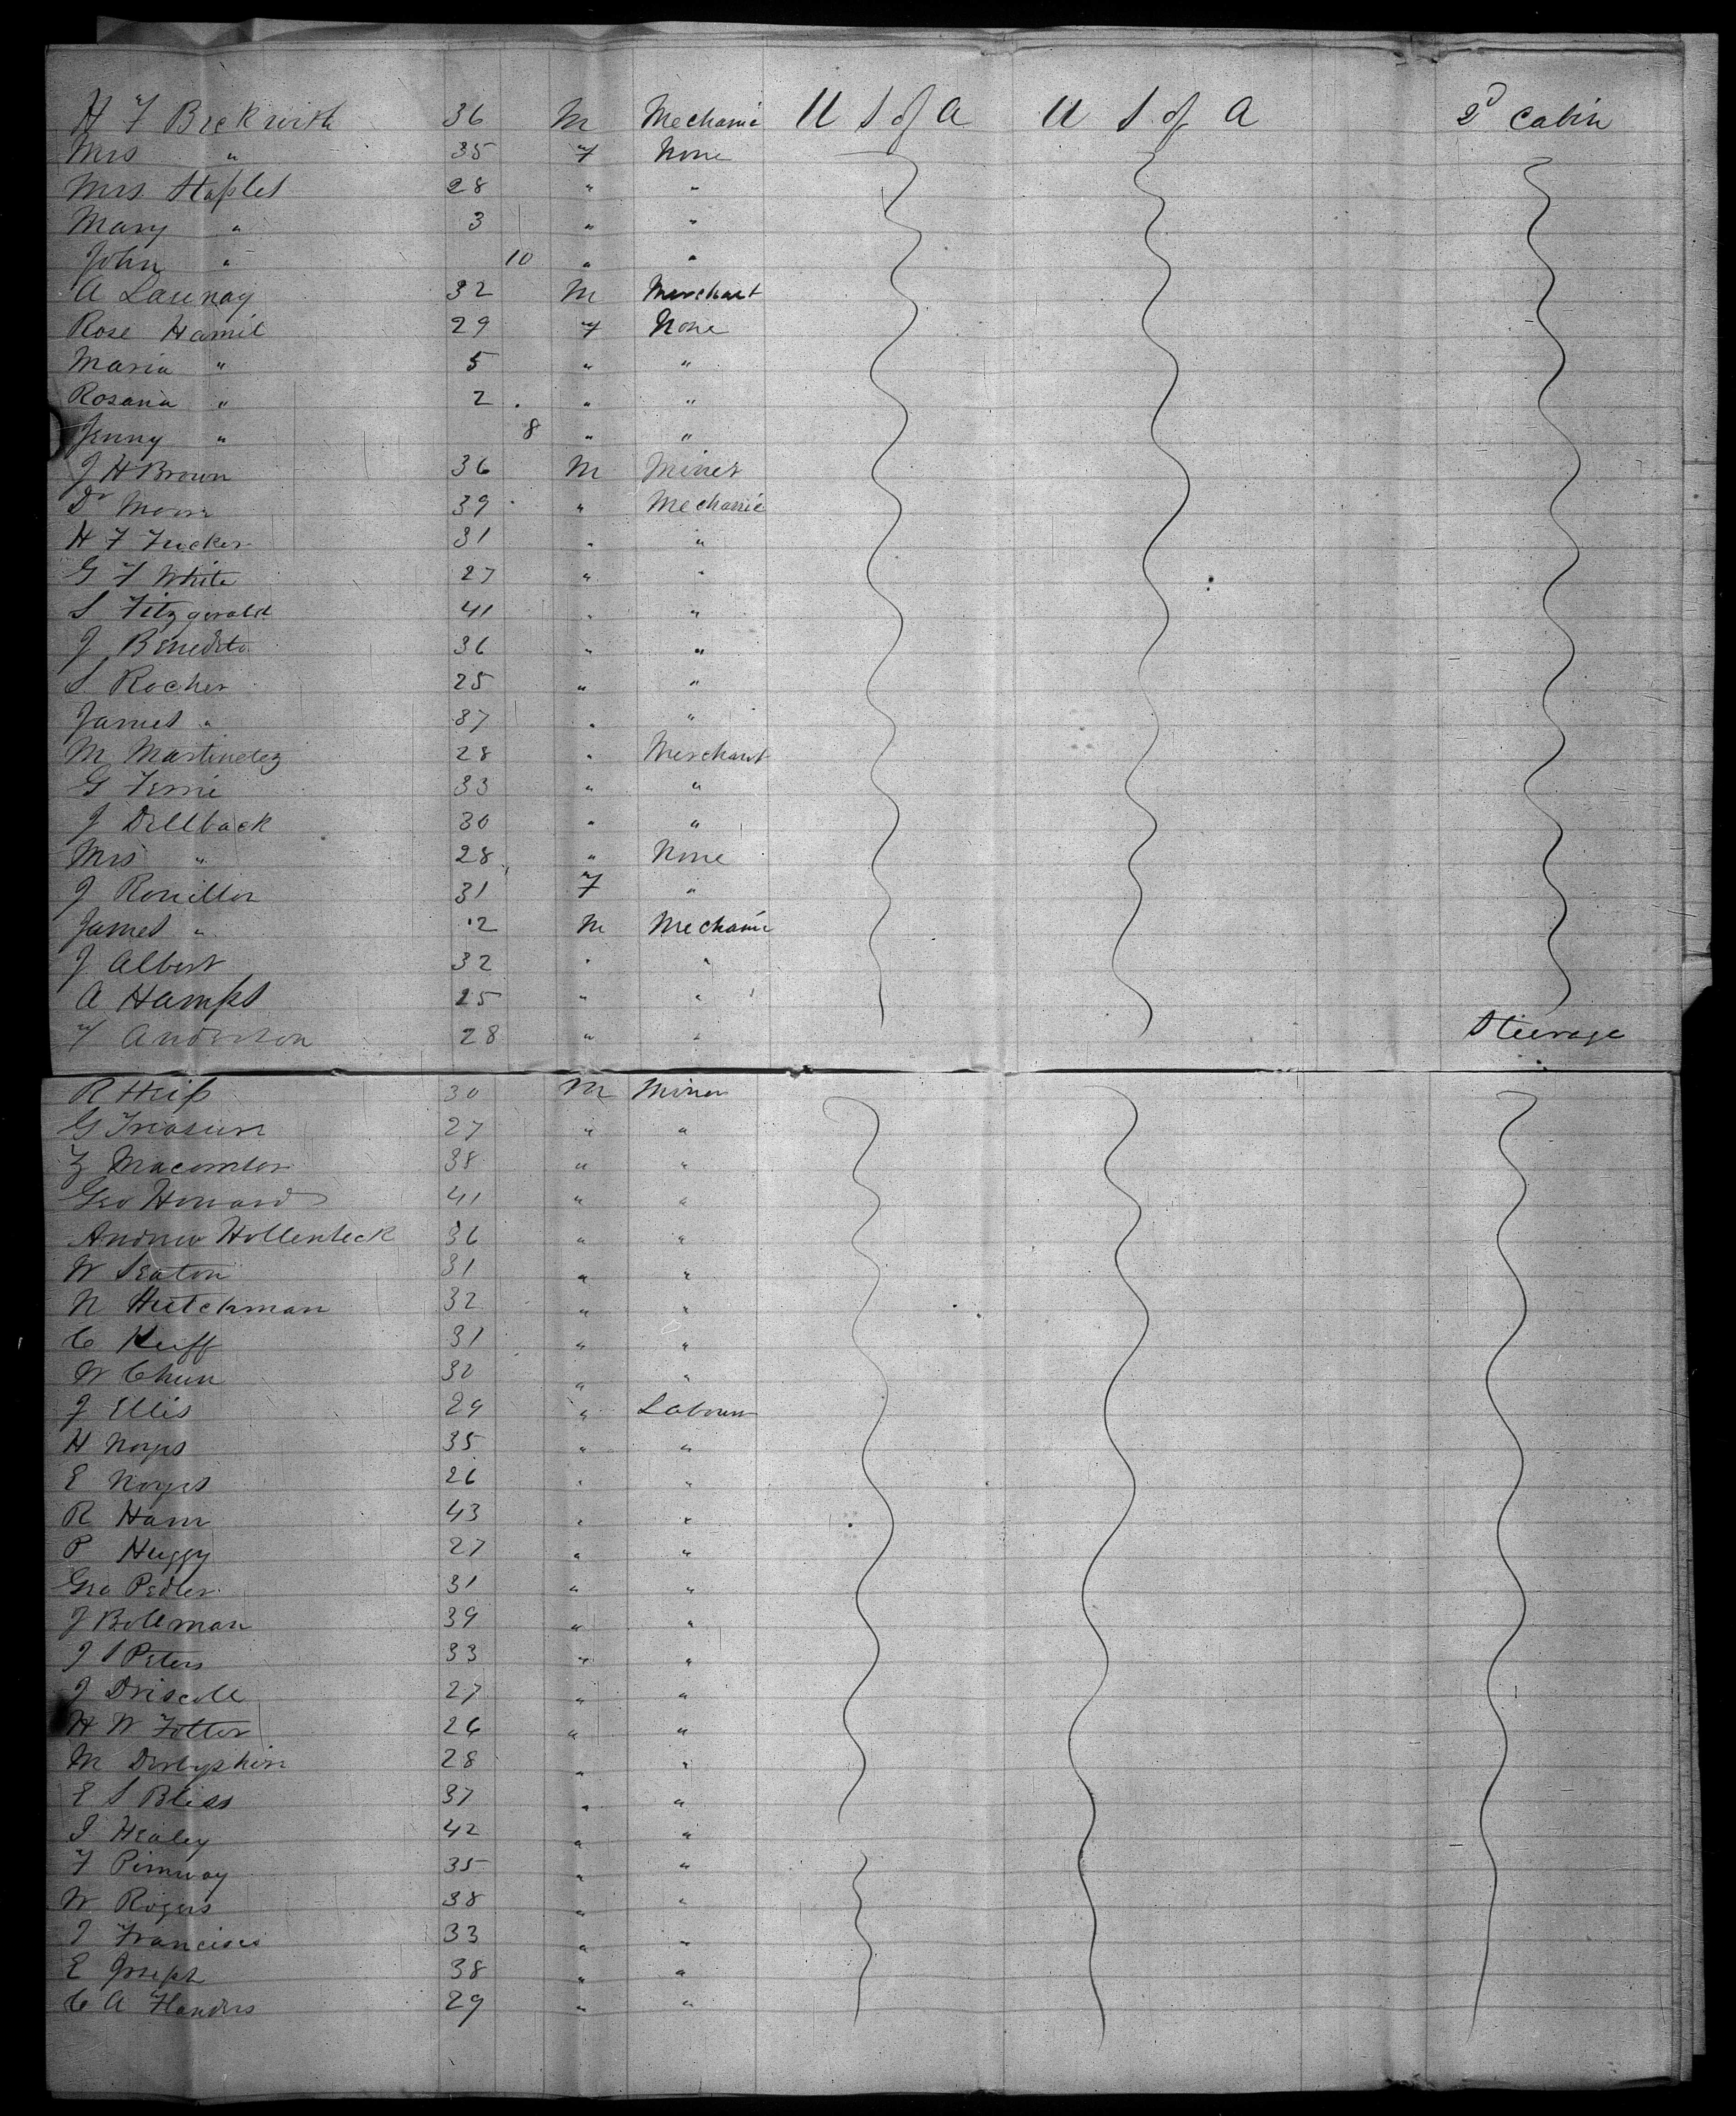 H F Beckwith 36 M Mechanic U S of A U S of A 2d Cabin
Mrs " 35 F None
Mrs Staples 28 " "
Mary " 3 " "
John " 10 " "
A Launay 32 M Merchant
Rose Hamil 29 F None
Maria " 5 " "
Rosana " 2 " "
Jenny " 8 " "
J H Brown 36 M Miner
Dr Moore 39 " Mechanic
H F Tucker 31 " "
G F White 27 " "
S Fitzgerald 41 " "
J Benedito 36 " "
S Rocher 25 " "
James " 37 " "
M Martinetez 28 " Merchant
G Ferrie 33 " "
J Dellback 30 " "
Mrs " 28 " None
J Rouillon 31 F "
James " 12 M Mechanic
J Albert 32 " "
A Hamps 25 " "
F Anderson 28 " " Steerage
R Heiss 30 M Miner
G Treasure 27 " "
Z Macomber 38 " "
Geo Howard 41 " "
Andrew Hollenbeck 36 " "
W Seaton 31 " "
N Hutchman 32 " "
C Keiff 31 " "
W Chun 30 " "
J Ellis 29 " Labourer
H Noyes 35 " "
E Noyes 26 " "
R Ham 43 " "
P Huggy 27 " "
Geo Pedler 31 " "
J Bollman 39 " "
J S Peters 33 " "
J Driscoll 27 " "
H W Potter 26 " "
M Derbyshire 28 " "
E S Bliss 37 " "
I Healey 42 " "
F Pimway 35 " "
W Rogers 38 " "
I Francisco 33 " "
E Joseph 38 " "
C A Flanders 29 " "